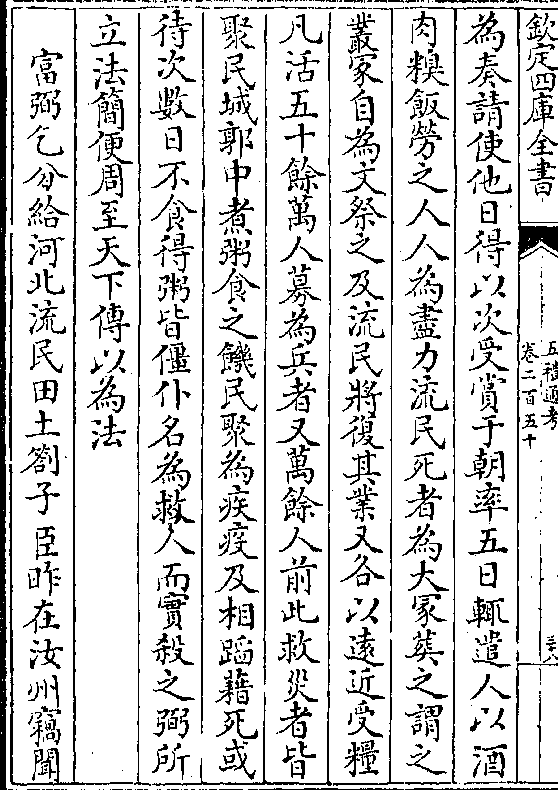 欽定四庫全書
五禮通考
卷二百五十
三十八
為奏請使他日得以次受賞于朝率五日輒遣人以酒
肉糗飯勞之人人為盡力流民死者為大冢葬之謂之
叢冢自為文祭之及流民將復其業又各以遠近受糧
凡活五十餘萬人募為兵者又萬餘人前此救災者皆
聚民城郭中煮粥食之饑民聚為疾疫及相蹈藉死或
待次數日不食得粥皆僵仆名為救人而實殺之弼所
立法簡便周至天下傳以為法
富弼乞分給河北流民田土劄子臣昨在汝州竊聞